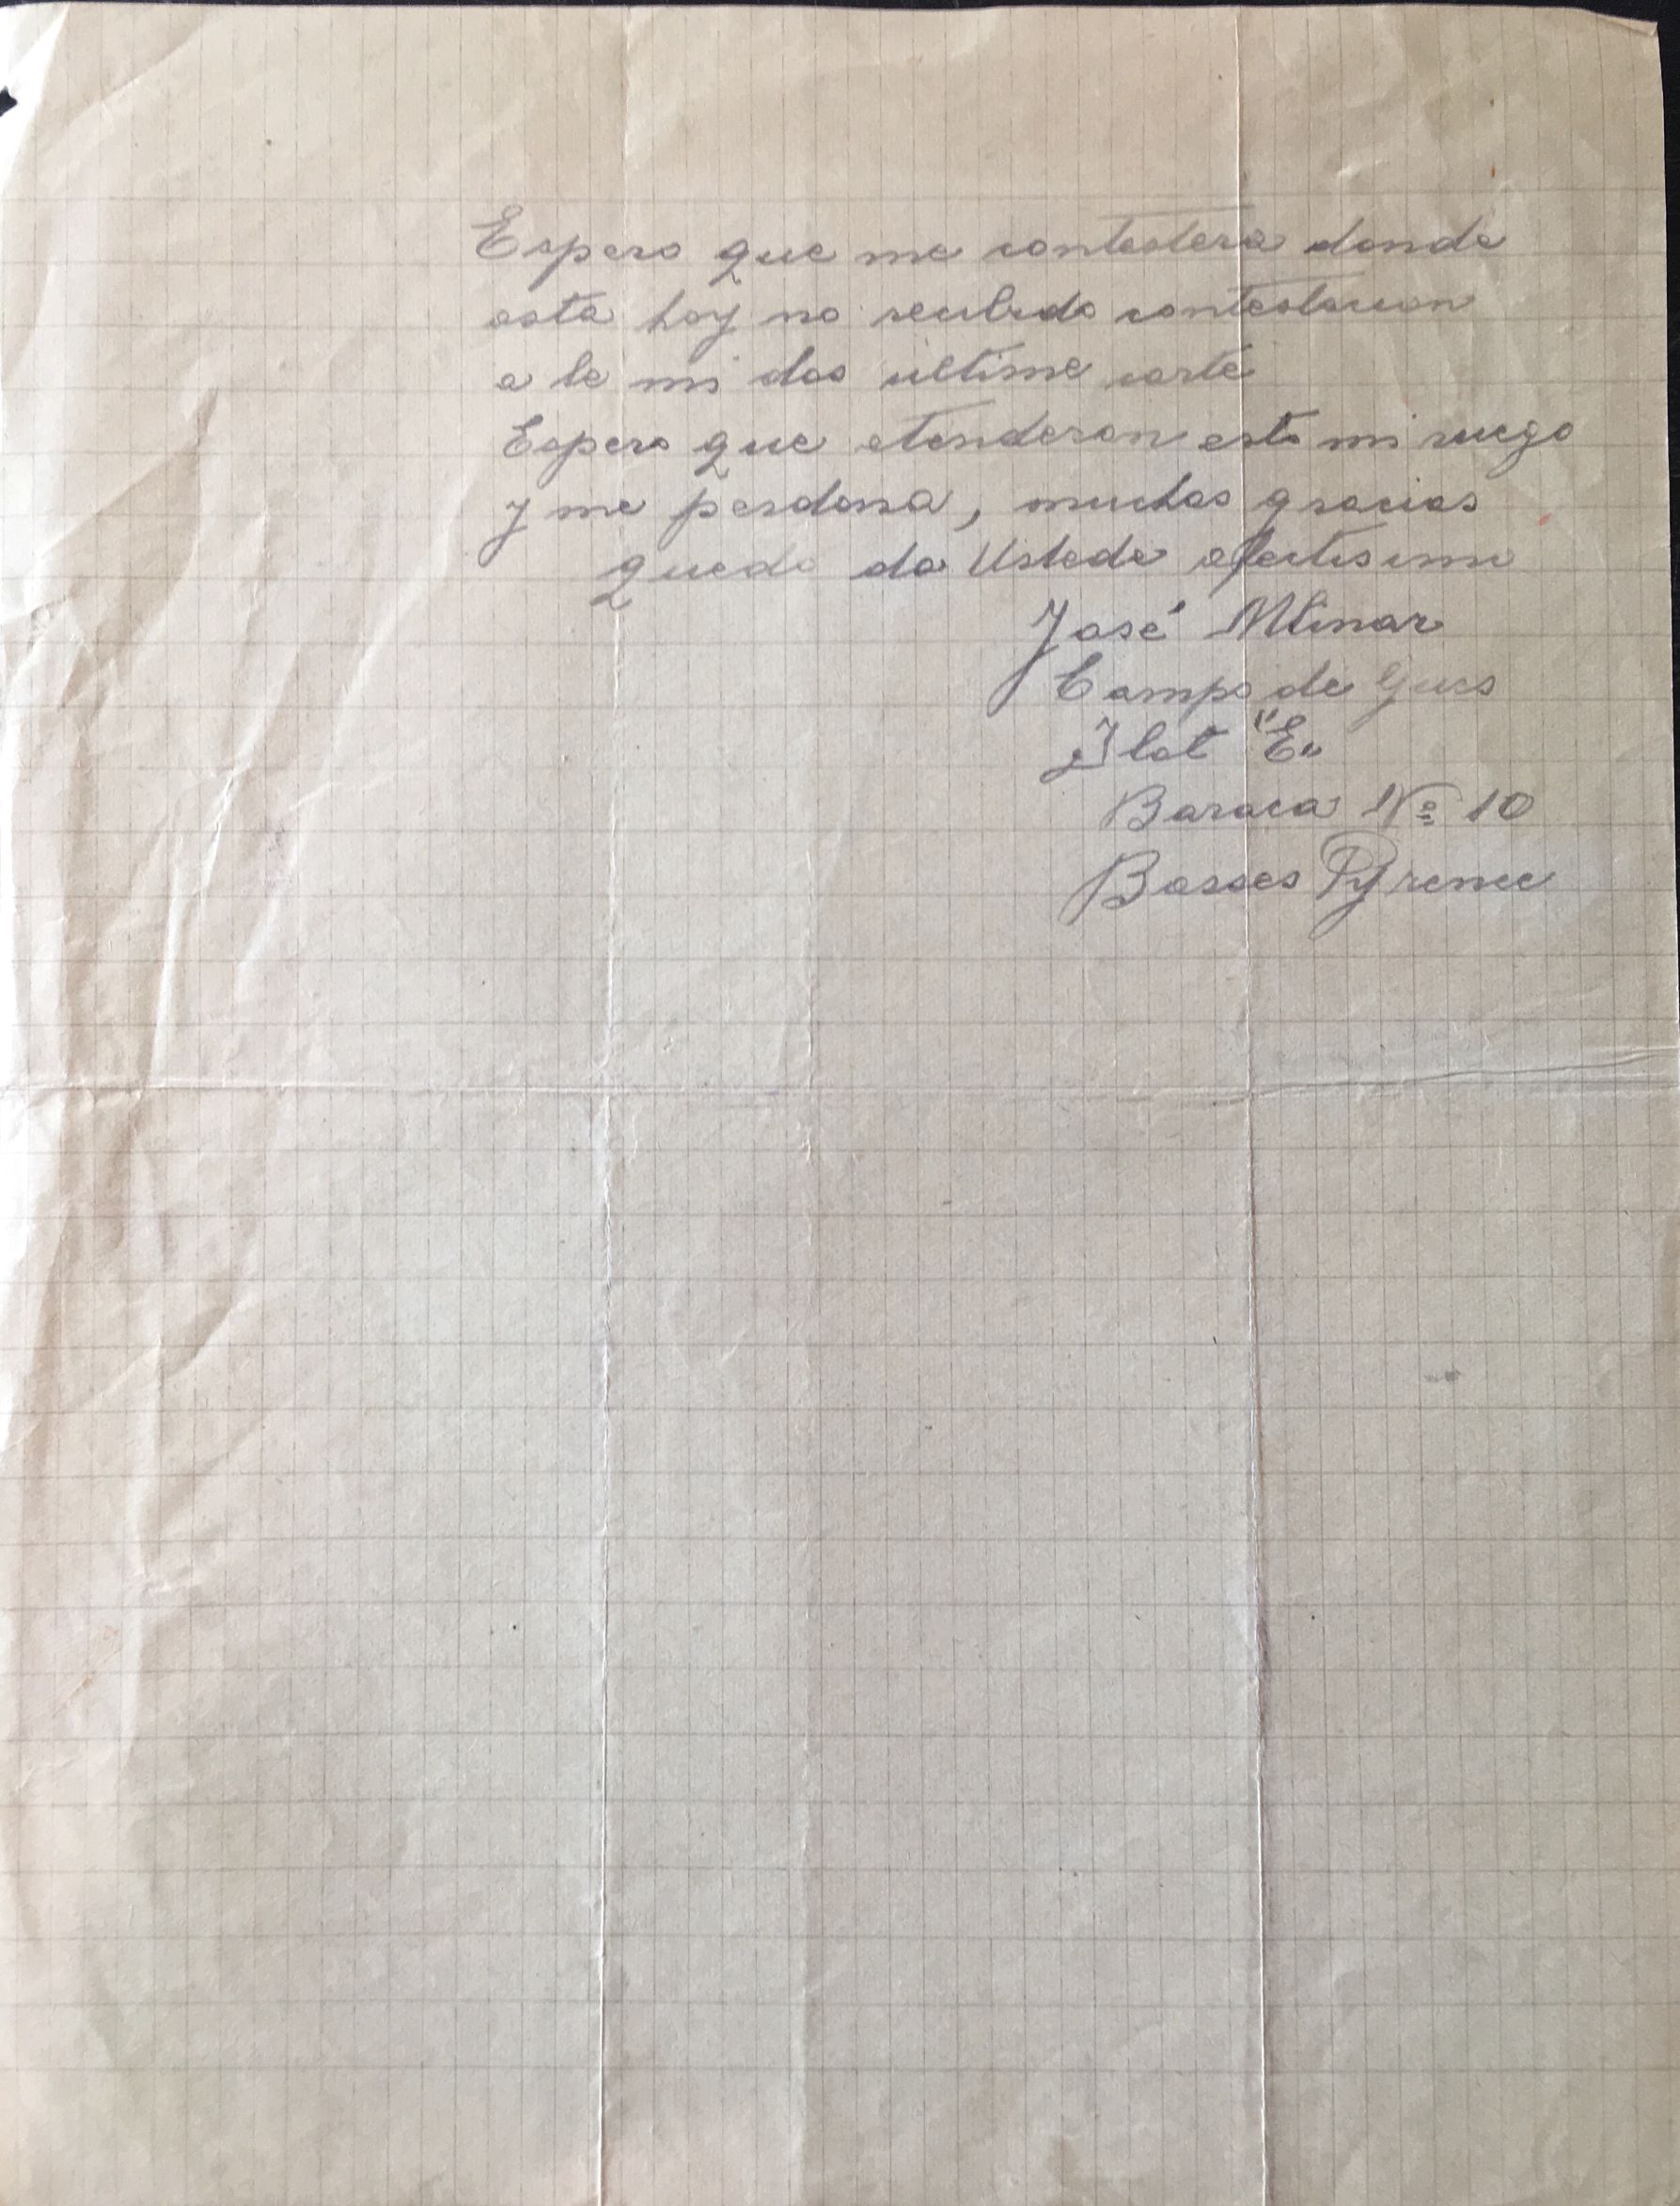 Espero que me contestera donde
asta hoy no recibido contestacion
a le mi dos ultime carte
Espero que etenderan esto mi ruego
y me perdona, muchas gracias
quedo da Ustede afectisimo
José Mlinar
Campo de Gurs
Ilot "E"
Baraca Nº 10
Basses Pyrenee